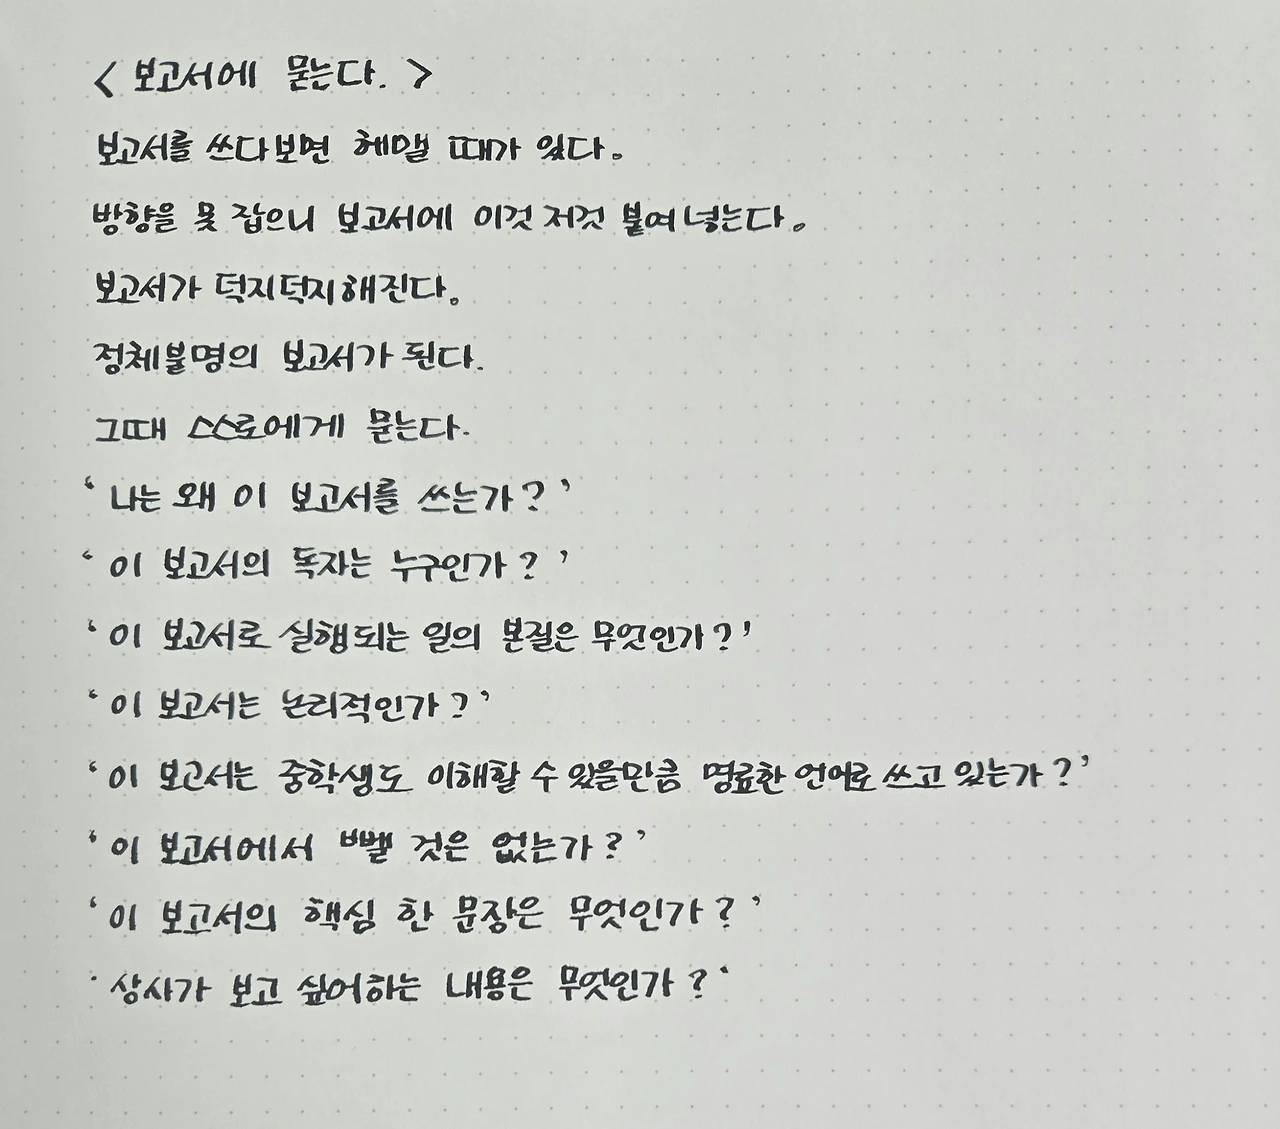 < 보고서에 묻는다. >
보고서를 쓰다보면 헤맬 때가 있다.
방향을 못 잡으니 보고서에 이것 저것 붙여 넣는다.
보고서가 덕지덕지해진다.
정체불명의 보고서가 된다.
그때 스스로에게 묻는다.
‘나는 왜 이 보고서를 쓰는가?’
‘이 보고서의 독자는 누구인가?’
‘이 보고서로 실행되는 일의 본질은 무엇인가?’
‘이 보고서는 논리적인가?’
‘이 보고서는 중학생도 이해할 수 있을만큼 명료한 언어로 쓰고 있는가?’
‘이 보고서에서 뺄 것은 없는가?’
‘이 보고서의 핵심 한 문장은 무엇인가?’
‘상사가 보고 싶어하는 내용은 무엇인가?‘